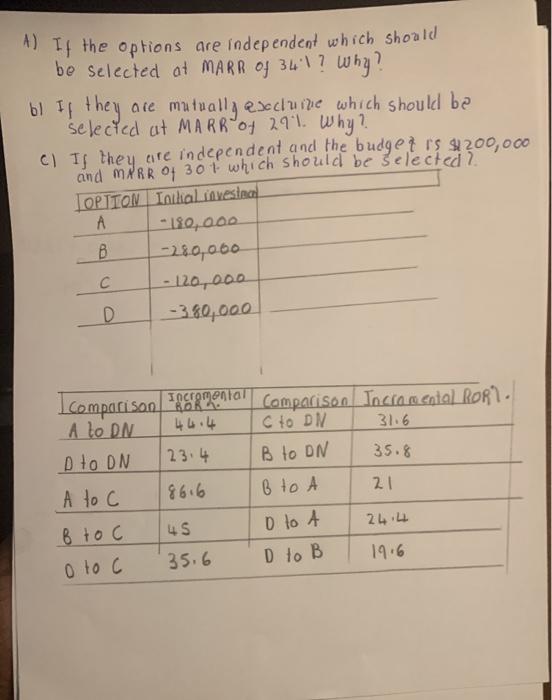 A) If the options are independent which should
be selected at MARR of 34%? Why?
b) If they are mutually exeeluive which should be
selected at MARR of 29%. Why?
c) If they are independent and the budget is $1200,000
and MARR of 30% which should be selected?
OPTION Initial investmed
A -180,000
B -280,000
C -120,000
D -380,000
Comparison Incremental ROR%. Comparison Incramental ROR%.
A to DN 44.4 C to DN 31.6
D to DN 23.4 B to DN 35.8
A to C 86.6 B to A 21
B to C 45 D to A 24.4
D to C 35.6 D to B 19.6